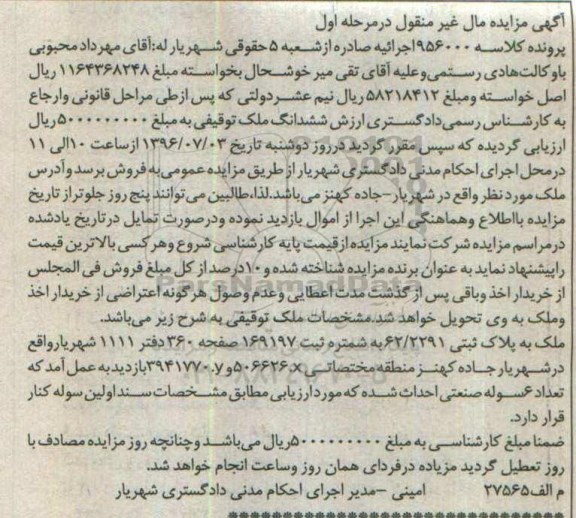 آگهی مزایده مال غیر منقول درمرحله اول
پرونده کلاسه ۹۵۶۰۰۰اجرائیه صادره ازشعبه ۵حقوقی شهریار له:آقای مهرداد محبوبی
باوکالت‌هادی رستمی وعلیه آقای تقی میر خوشحال بخواسته مبلغ ۱۱۶۴۳۶۸۲۴۸ ریال
اصل خواسته ومبلغ ۵۸۲۱۸۴۱۲ ریال نیم عشردولتی که پس ازطی مراحل قانونی وارجاع
به کارشناس رسمی دادگستری ارزش ششدانگ ملک توقیفی به مبلغ ۵۰۰۰۰۰۰۰۰۰۰ریال
ارزیابی گردیده که سپس مقرر گردید درروز دوشنبه تاریخ ۱۳۹۶/۰۷/۰۳ ازساعت ۱۰الی ۱۱
درمحل اجرای احکام مدنی دادگستری شهریار از طریق مزایده عمومی به فروش برسد وآدرس
ملک مورد نظر واقع در شهریار-جاده کهنز می‌باشد.لذا،طالبین می‌توانند پنج روز جلوتراز تاریخ
مزایده بااطلاع وهماهنگی این اجرا از اموال بازدید نموده ودرصورت تمایل درتاریخ یادشده
درمراسم مزایده شرکت نمایند مزایده ازقیمت پایه کارشناسی شروع وهرکسی بالاترین قیمت
راپیشنهاد نماید به عنوان برنده مزایده شناخته شده و۱۰درصد از کل مبلغ فروش فی المجلس
از خریدار اخذ وباقی پس از گذشت مدت اعطایی وعدم وصول هر گونه اعتراضی از خریدار اخذ
وملک به وی تحویل خواهد شد.مشخصات ملک توقیفی به شرح زیر می‌باشد.
ملک به پلاک ثبتی ۶۲/۲۲۹۱ به شمتره ثبت ۱۶۹۱۹۷ صفحه ۳۶۰ دفتر ۱۱۱۱ شهریارواقع
درشهریار جاده کهنز منطقه مختصاتی x.۵۰۶۶۲۶و y.۳۹۴۱۷۷۰بازدید به عمل آمد که
تعداد ۶سوله صنعتی احداث شده که مورد ارزیابی مطابق مشخصات سند اولین سوله کنار
قرار دارد.
ضمنا مبلغ کارشناسی به مبلغ ۵۰۰۰۰۰۰۰۰۰۰ریال می‌باشد وچنانچه روز مزایده مصادف با
روز تعطیل گردید مزیاده درفردای همان روز وساعت انجام خواهد شد.
م الف۲۷۵۶۵ امینی -مدیر اجرای احکام مدنی دادگستری شهریار
ParsNamadData